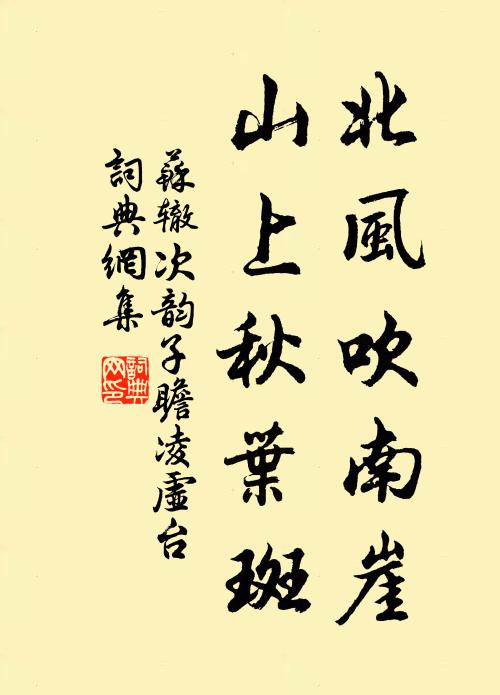 北風吹南崖
山上秋葉斑
蘇辙次韵子瞻凌虛台
詞典網集
詞典
网印